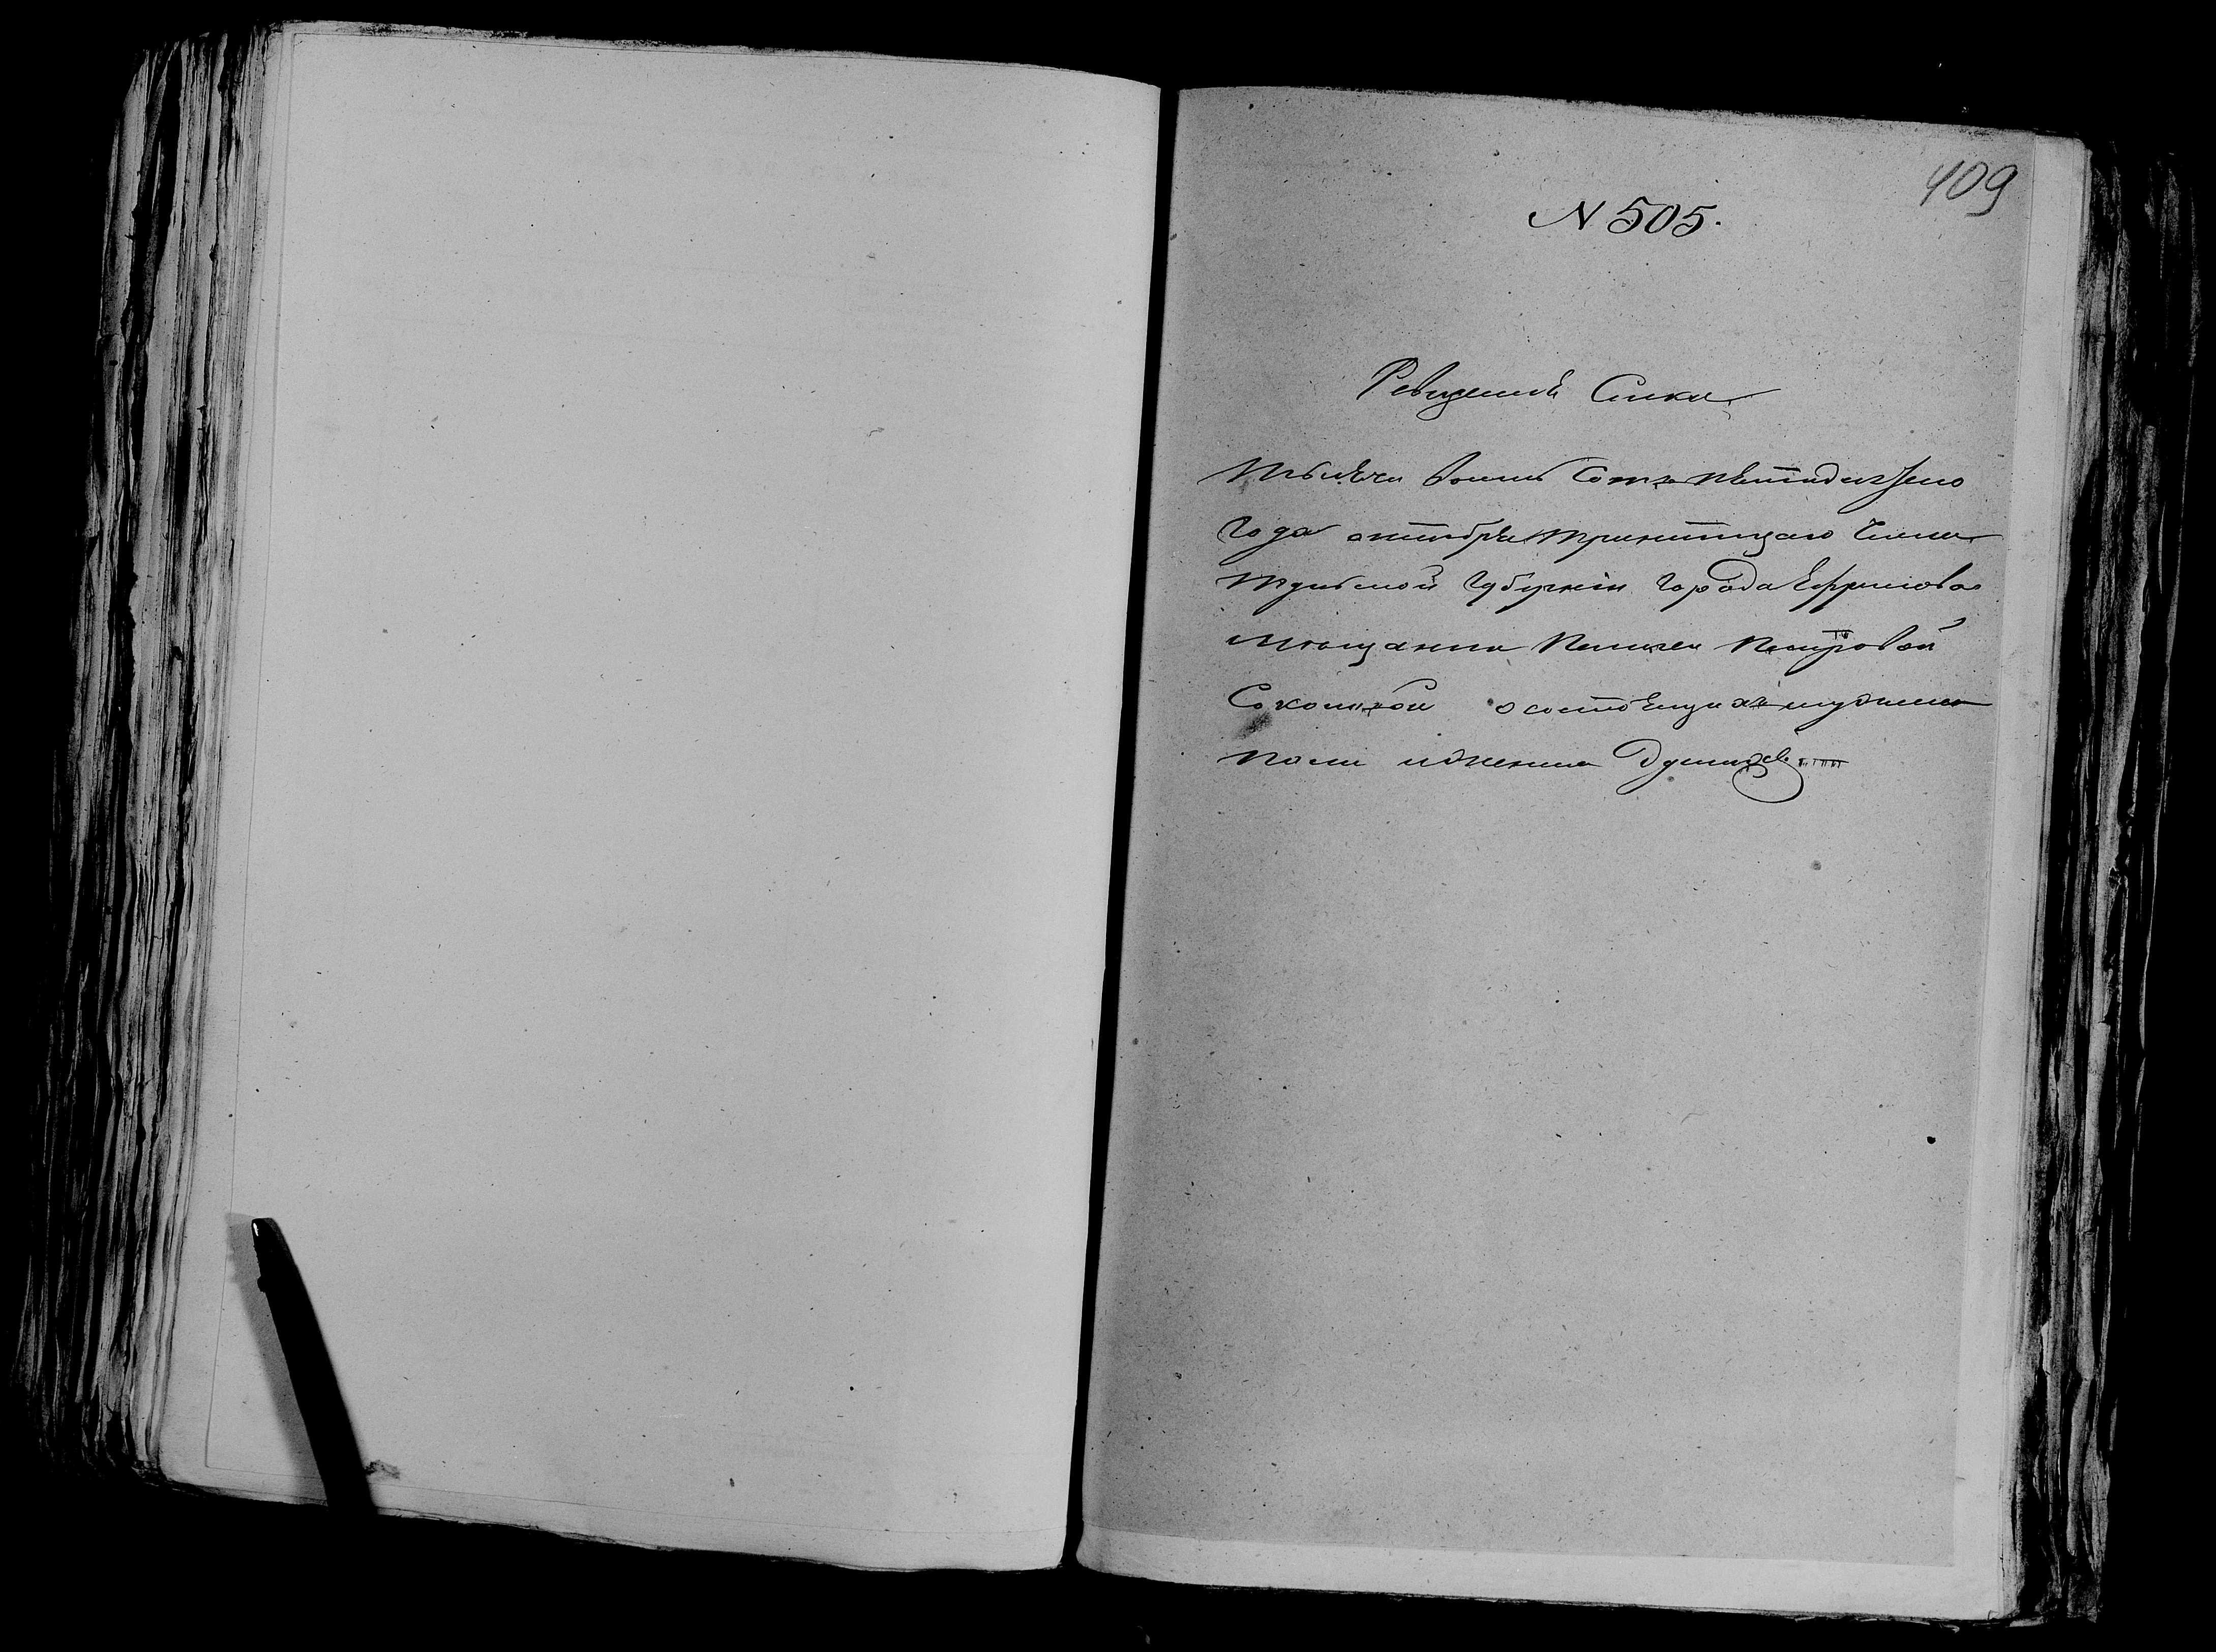 409
N 505.
Ревизская Скаска
Тысяча восемь сотъ пятидесятаго
года октября тритцатаго числа
Тульской губерніи города Ефремова
мещанки Петровой
состоящихъ мужеска
пола и женска душахъ